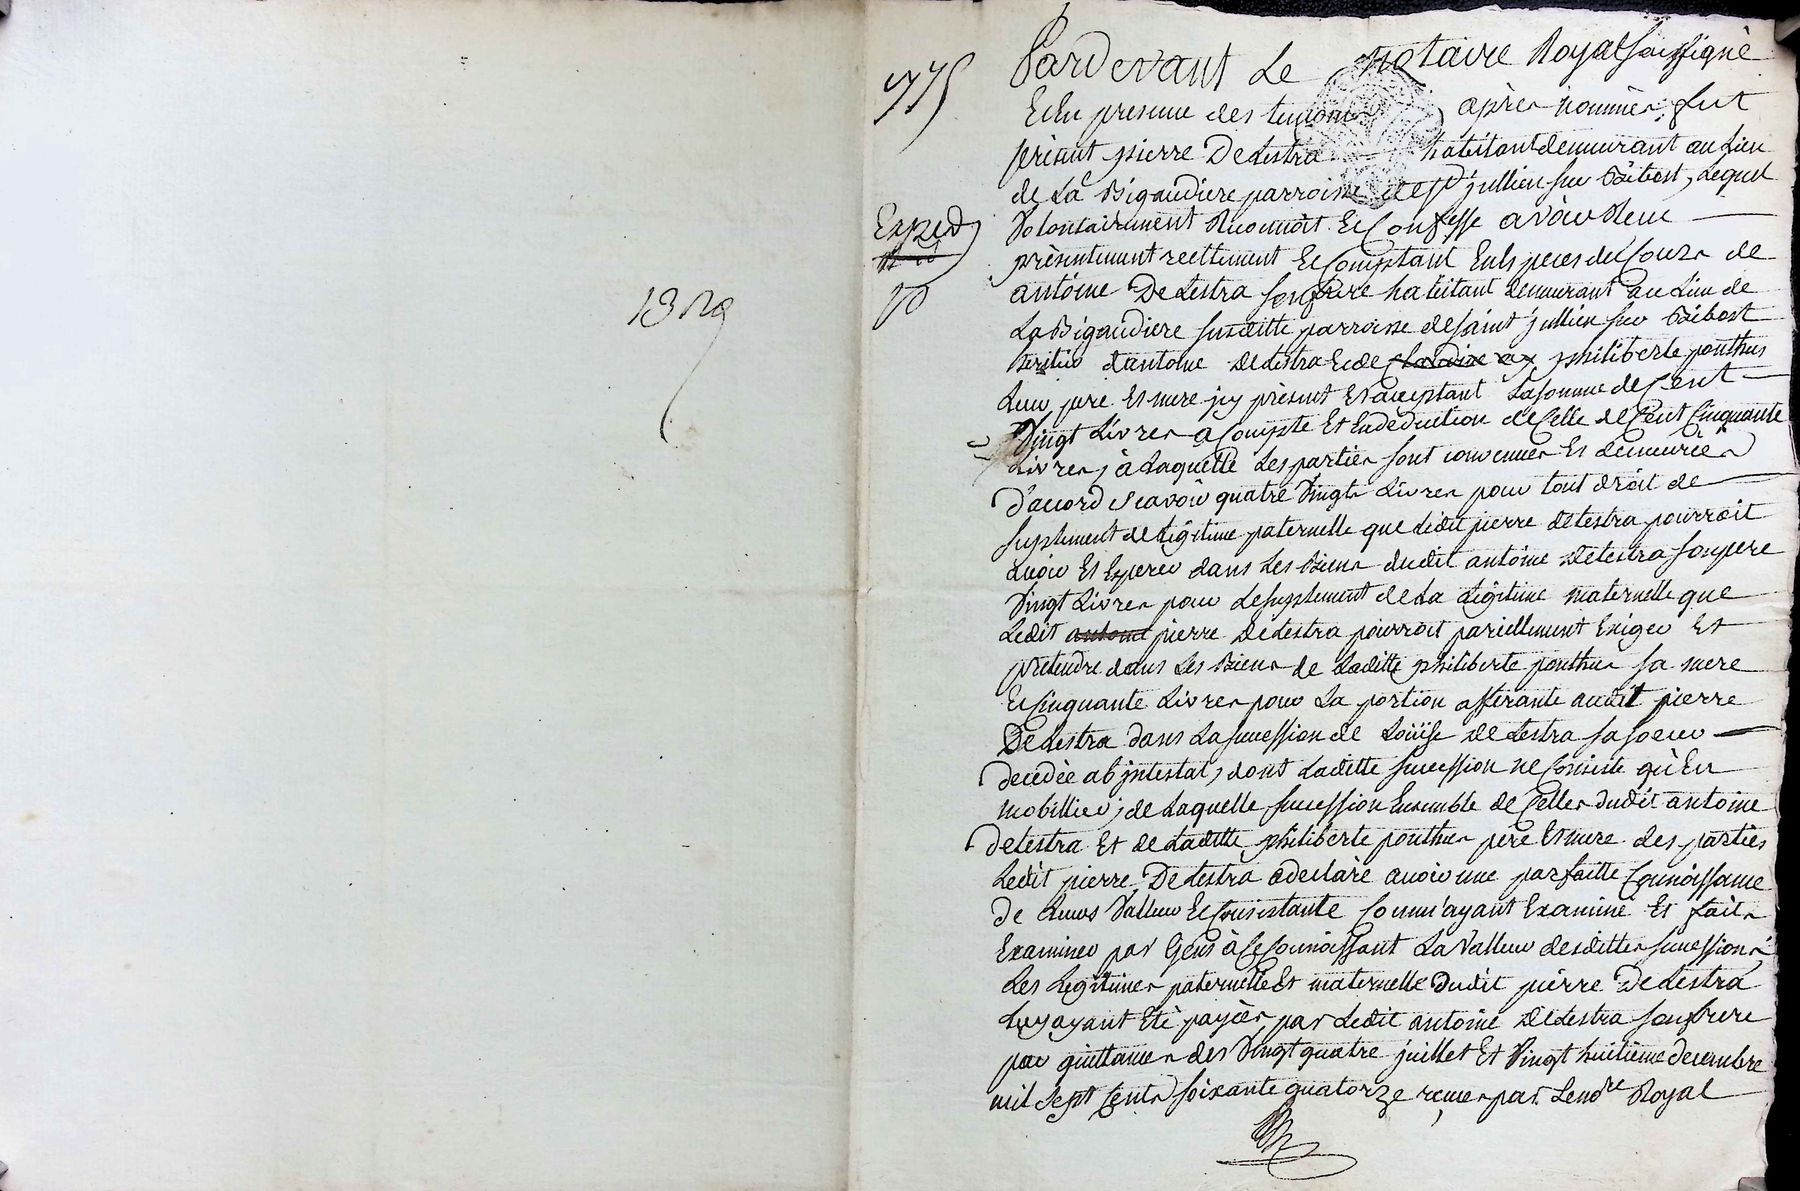 1329
775
Exped
Pardevant Le notaire Royal soussigné
Et En presence des temoins après nommés, fut
présent pierre Delestra habitant demeurant au Lieu
de La Bigaudiere parroisse de st jullien sur Bibost, Lequel
Volontairement Reconnoit Et Confesse avoir Receu
présentement reellement Et Comptant En Especes de Cours de
antoine Delestra son frere habitant demeurant au Lieu de
La Bigaudiere susditte parroisse de saint jullien sur Bibost
heritier d'antoine delestra Et de philiberte ponthus
Leur pere Et mere icy présent Et acceptant La somme de Cent
Vingt Livres à Compte Et En deduction de Celle de Cent Cinquante
Livres, à Laquelle Les parties sont convenues Et demeurées
d'accord scavoir quatre Vingts Livres pour tout droit de
suplement de Légitime paternelle que Ledit pierre delestra pourroit
avoir Et Esperer dans Les Biens dudit antoine Delestra son pere
Vingt Livres pour Le suplement de La Légitime maternelle que
Ledit antoine pierre delestra pourroit pariellement Exiger Et
prétendre dans Les Biens de Laditte philiberte ponthus sa mere
Et Cinquante Livres pour La portion afferante audit pierre
Delestra dans La succession de Loüise delestra sa soeur
decedée ab jntestat, dont Laditte succession ne Consiste qu'En
mobillier; de Laquelle succession Ensemble de Celles dudit antoine
delestra Et de Laditte philiberte ponthus père Et mere des parties
Ledit pierre Delestra a déclaré avoir une parfaitte Connoissance
de Leurs Valleur Et Consistante Comm'ayant Examiné Et fait
Examiner par Gens à Ce Connoissant La Valleur desdittes successions
Les Légitimes paternelle Et maternelle dudit pierre Delestra
Luy ayant Eté payées par Ledit antoine delestra son frere
par quittances des Vingt quatre juillet Et Vingt huitieme decembre
mil sept Cents soixante quatorze reçues par Le nore Royal